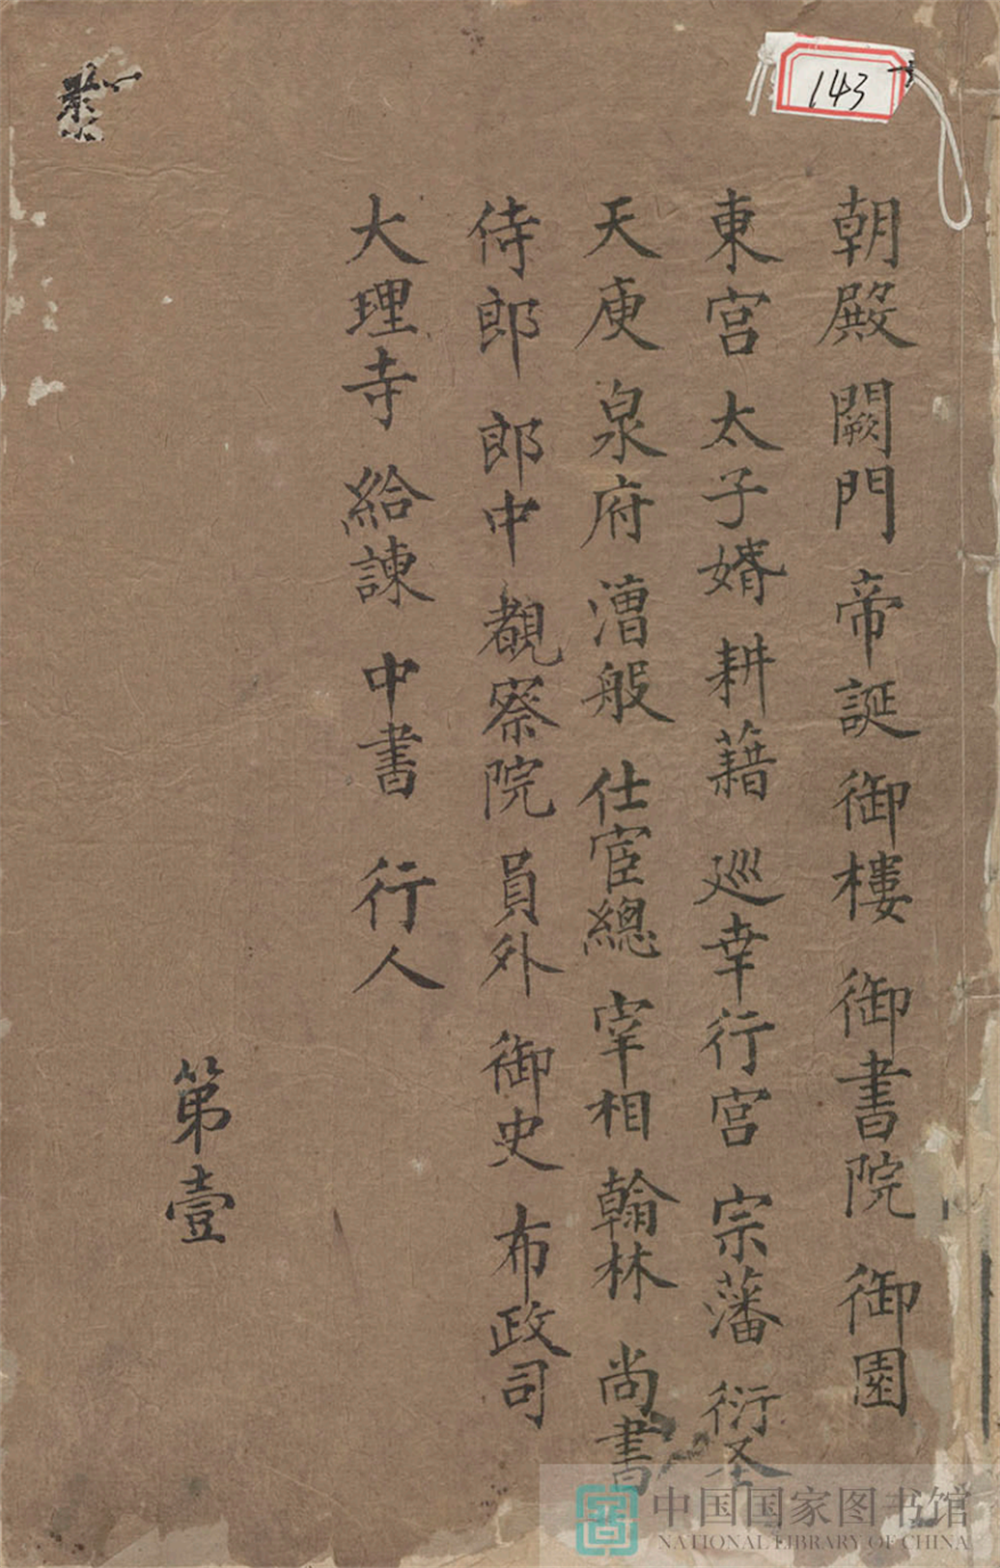 143
朝殿 闕門 帝誕 御樓 御書院 御園
東宮 太子婚 耕藉 巡幸行宮 宗藩 衍圣
天庾 泉府 漕般 仕宦總 宰相 翰林 尚書
侍郎 郎中 覩察院 員外 御史 布政司
大理寺 給諫 中書 行人
第壹
中国国家图书馆
NATIONAL LIBRARY OF CHINA